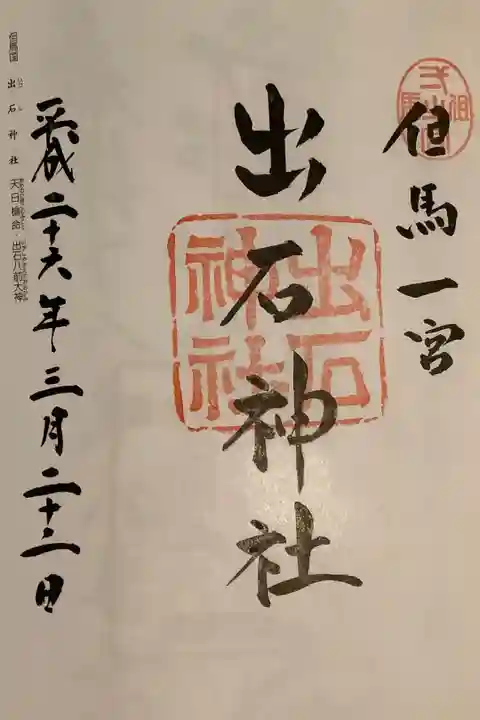 但馬一宮
出石神社
出石
神社
平成二十六年三月二十二日
但馬国 出石神社 天日槍命・出石八前大神